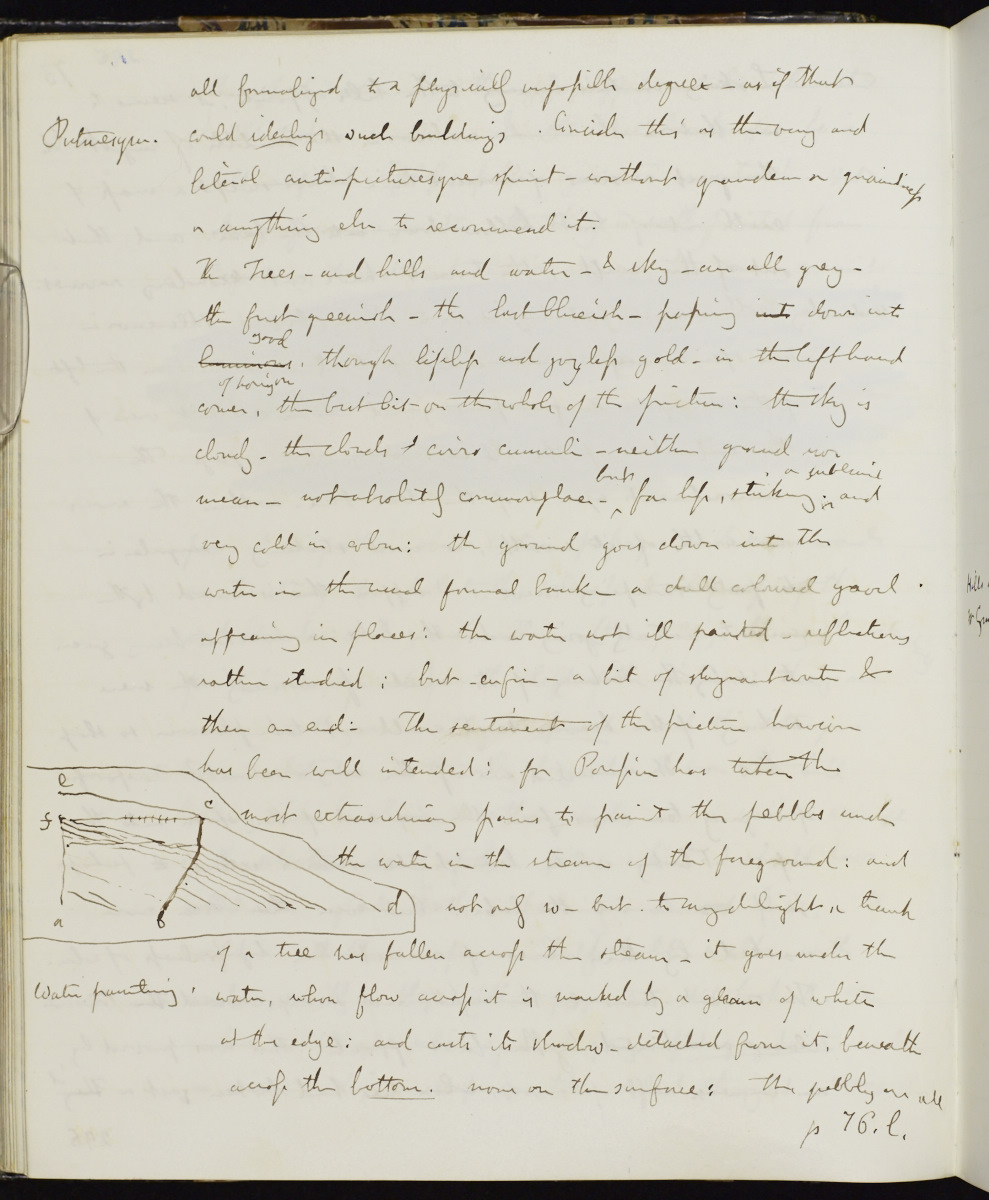 all formalized to a physically impossible degree – as if that
Picturesque. could idealize such buildings. Consider this as the very and
literal anti-picturesque spirit – without grandeur or graciousness
or anything else to recommend it.
The Trees – and hills and water – & sky – are all grey –
the first greenish – the last blueish – passing into down into
good
luminous, though lifeless and joyless gold – in the left hand
of horizon
corner, the best bit on the whole of the picture: the sky is
cloudy – the clouds cirro cumuli – neither grand nor
but or sublime
mean – not absolutely commonplace – far less, striking; or and
very cold in colour: the ground goes down into the
water in the usual formal bank – a dull coloured gravel
appearing in places: the water not ill painted – reflections
rather studied; but – enfin – a bit of stagnant water &
then an end: The sentiment of the picture however
has been well intended: for Poussin has taken the
e
c
f
most extraordinary pains to paint the pebbles under
the water in the stream of the foreground: and
d
not only so – but to my delight, a trunk
a
b
of a tree has fallen across the stream – it goes under the
Water painting. water, whose flow across it is marked by a gleam of white
at the edge: and casts its shadow – detached from it, beneath
across the bottom. none on the surface: the pebbly are all
p 76. l.